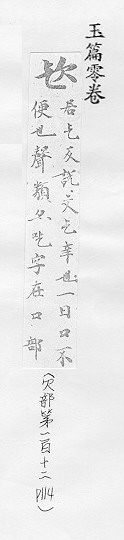 玉篇零卷
居乞反說文乞幸也一曰口不
便也聲類亦吃字在口部
(欠部第一百十二 P114)